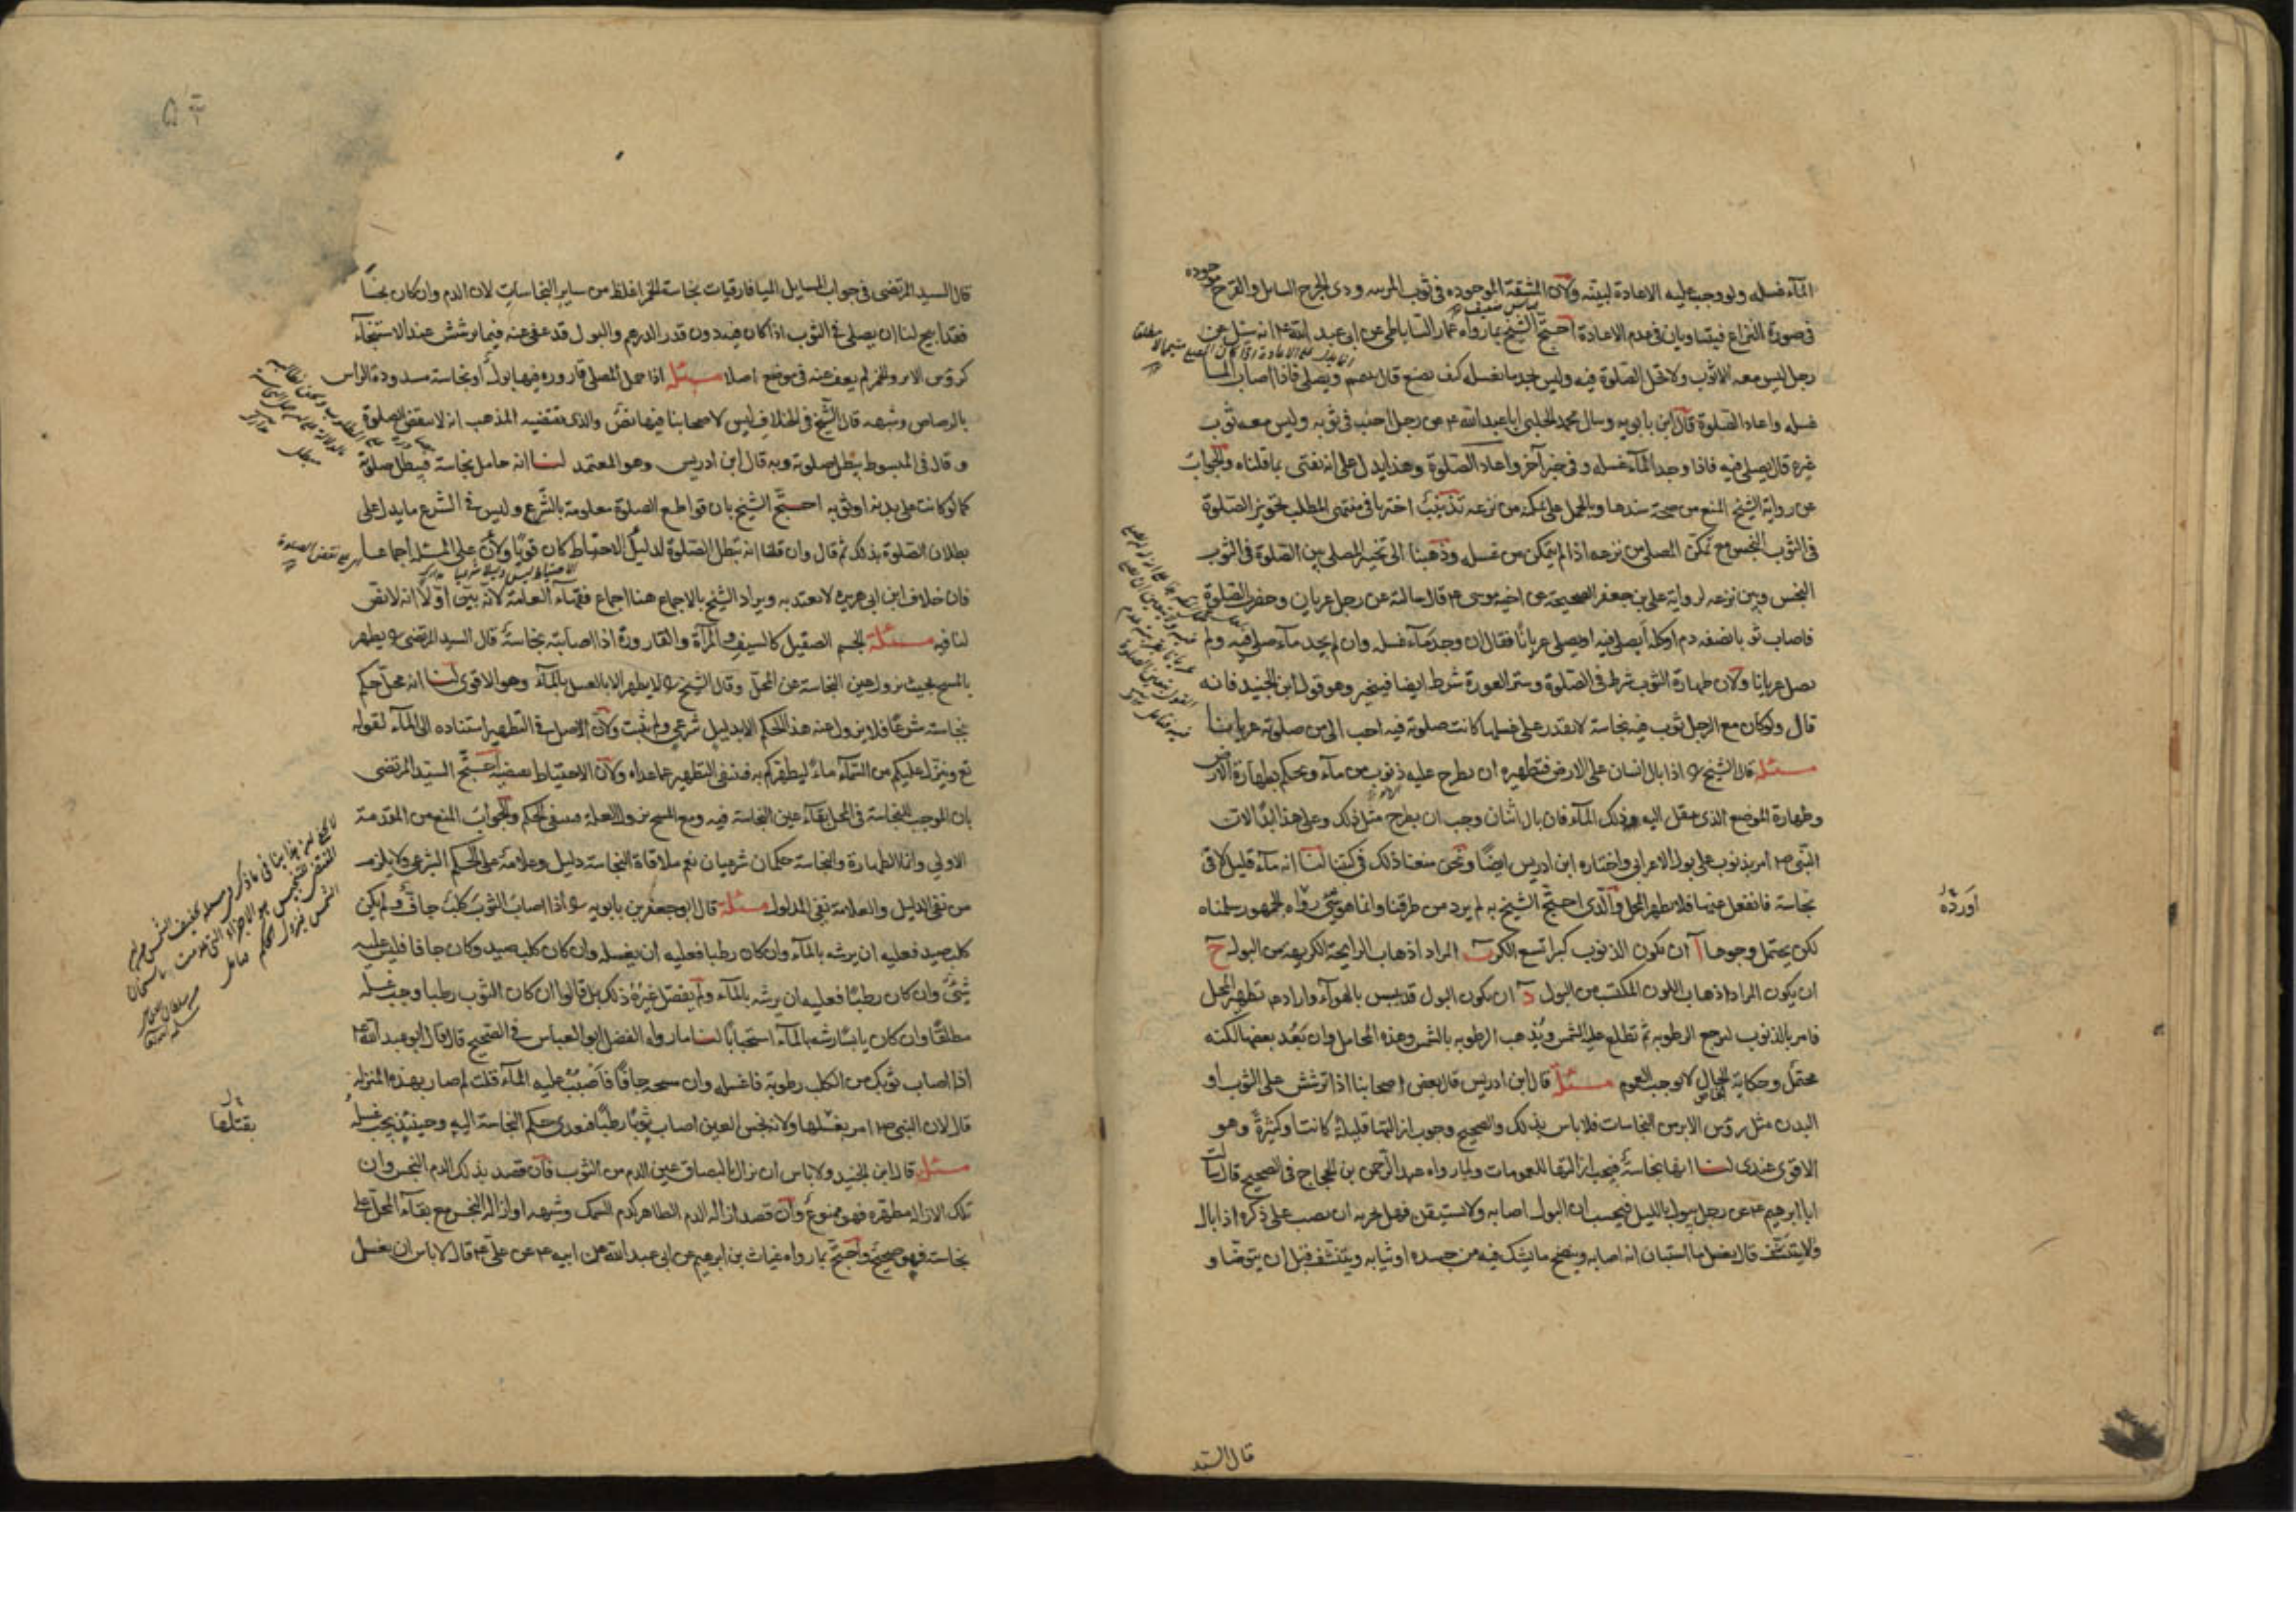 المآء غسله ولو وجب عليه الاعادة لبيّنه ولان المشقة الموجوده فى ثوب المربيه وذى الجرح السايل والقرح موجوده
فى صورة النزاع فيتساويان فى عدم الاعادة احتجّ الشيخ بما رواه عمار الساباطى عن ابى عبد الله ع انه سئل عن
رجل ليس معه الا ثوب ولا تحل الصلوة فيه وليس يجد ما يغسله كيف يصنع قال يتيمم ويصلى فاذا اصاب المآء
غسله واعاد الصلوة قال ابن بابويه وسال محمد الحلبى ابا عبد الله ع عن رجل اجنب فى ثوبه وليس معه ثوب
غيره قال يصلى فيه فاذا وجد المآء غسله وفى خبر آخر واعاد الصلوة وهذا يدل على انه يفتى بما قلناه والجواب
عن رواية الشيخ المنع من صحة سندها وبالحمل على تمكنه من نزعه تذنيب اخترنا فى منتهى المطلب تجويز الصلوة
فى الثوب النجس مع تمكن المصلى من نزعه اذا لم يتمكن من غسله وذهبنا الى تخير المصلى بين الصلوة فى الثوب
النجس وبين نزعه لرواية على بن جعفر الصحيحة عن اخيه موسى ع قال سالته عن رجل عريان وحضرت الصلوة
فاصاب ثوبا نصفه دم او كله أيصلى فيه او يصلى عريانًا فقال ان وجد مآء غسله وان لم يجد مآء صلى فيه ولم
يصل عريانا ولان طهارة الثوب شرط فى الصلوة وستر العورة شرط ايضا فيتخير وهو قول ابن الجنيد فانه
قال ولو كان مع الرجل ثوب فيه نجاسة لا يقدر على غسلها كانت صلوته فيه احب الى من صلوته عريانا
مسئلة قال الشيخ ره اذا بال انسان على الارض فتطهيره ان يطرح عليه ذنوب من مآء ويحكم بطهارة الارض
وطهارة الموضع الذى ينتقل اليه ذلك المآء فان بال اثنان وجب ان يطرح مثل ذلك وعلى هذا ابدًا لان
النبى ص امر بذنوب على بول الاعرابى واختاره ابن ادريس ايضًا ونحن منعنا ذلك فى كتبنا لنا انه مآء قليل لاقى
نجاسة فانفعل عنها فلا يطهر المحل والّذى احتجّ الشيخ به لم يرد من طرقنا وانما هو شئ رواه الجمهور سلمناه
لكن يحتمل وجوها آ ان يكون الذنوب كبرا تسع الكر ب المراد اذهاب الرايحة الكريهة من البول ج
ان يكون المراد اذهاب اللون المكتسب من البول د ان يكون البول قد يبس بالهوآء واراد ع تطهير المحل
فامر بالذنوب لترجع الرطوبة ثم تطلع عليه الشمس ويذهب الرطوبه بالشمس وهذه المحامل وان بَعُد بعضها لكنه
محتمل وحكاية الحال لا توجب العموم مسئلة قال ابن ادريس قال بعض اصحابنا اذا ترشش على الثوب او
البدن مثل رؤس الابر من النجاسات فلا باس بذلك والصحيح وجوب ازالتها قليلة كانت او كثيرةً وهو
الاقوى عندى لنا انها نجاسةٌ فيجب ازالتها للعمومات ولما رواه عبد الرحمن بن الحجاج فى الصحيح قال سالت
ابا ابرهيم ع عن رجل يبول بالليل فيحسب ان البول اصابه ولا يستيقن فهل يجزيه ان يصب على ذكره اذا بال
ولا يتنشّف قال يغسل ما استبان انه اصابه وينضح ما يشك فيه من جسده او ثيابه ويتنشف قبل ان يتوضّا و
أورده
قال السيد
قال السيد المرتضى فى جواب المسايل الميافارقيات نجاسة الخمر اغلظ من ساير النجاسات لان الدم وان كان نجسًا
فقد ابيح لنا ان يصلى فى الثوب اذا كان فيه دون قدر الدرهم والبول قد عفى عنه فيما ترشش عند الاستنجآء
كرؤس الابر والخمر لم يعف عنه فى موضع اصلا مسئلة اذا حمل المصلى قارورة فيها بول أو نجاسة مسدودة الراس
بالرصاص وشبهه قال الشيخ فى الخلاف ليس لاصحابنا فيها نصّ والذى يقتضيه المذهب انه لا ينقض الصلوة
وقال فى المبسوط يبطل صلوته وبه قال ابن ادريس وهو المعتمد لنا انه حامل نجاسة فيبطل صلوته
كما لو كانت على بدنه او ثوبه احتجّ الشيخ بان قواطع الصلوة معلومة بالشّرع وليس فى الشرع ما يدل على
بطلان الصلوة بذلك ثم قال وان قلنا انه تبطل الصلوة لدليل الاحتياط كان قويًا ولأن على المسئلة اجماعا
فان خلاف ابن ابى هريرة لا يعتد به ويراد الشيخ بالاجماع هنا اجماع فقهآء العامة لانّه بيّن اوّلا انه لا نصّ
لنا فيه مسئلة الجسم الصقيل كالسيف والمرآة والقارورة اذا اصابته نجاسةٌ قال السيد المرتضى ره يطهر
بالمسح بحيث يزول عين النجاسة عن المحلّ وقال الشيخ ره لا يطهر الا بالغسل بالمآء وهو الاقوى لنا انه محلّ حكم
بنجاسته شرعًا فلا يزول عنه هذا الحكم الا بدليل شرعى ولم يثبت ولأن الاصل فى التطهير استناده الى المآء لقوله
تع وينزل عليكم من السّمآء مآءً ليطهركم به فينتفى التطهير عما عداه ولان الاحتياط يقتضيه احتجّ السيّد المرتضى
بان الموجب للنجاسة فى المحل بقآء عين النجاسة فيه ومع المسح يزول العلة فينتفى الحكم والجواب المنع من المقدمة
الاولى وانما الطهارة والنجاسة حكمان شرعيان نعم ملاقاة النجاسة دليل وعلامة على الحكم الشرعى ولا يلزم
من نفى الدليل والعلامة نفى المدلول مسئلة قال ابو جعفر بن بابويه ره اذا اصاب الثوب كلب جاف ولم يكن
كلب صيد فعليه ان يرشه بالمآء وان كان رطبا فعليه ان يغسله وان كان كلب صيد وكان جافا فليس عليه
شئ وان كان رطبًا فعليه ان يرشه بالمآء ولم يفصّل غيره ذلك بل قالوا ان كان الثوب رطبا وجب غسله
مطلقًا وان كان يابسًا رشه بالمآء استحبابًا لنا ما رواه الفضل ابو العباس فى الصحيح قال قال ابو عبد الله ع
اذا اصاب ثوبك من الكلب رطوبة فاغسله وان مسحه جافًا فاصْبُب عليه المآء قلت لم صار بهذه المنزلة
قال لان النبى ص امر بغسلها ولانه نجس العين اصاب ثوبًا رطبًا فيعدى حكم النجاسة اليه وحينئذٍ يجب غسله
مسئلة قال ابن الجنيد ولا باس ان يزال بالبصاق عين الدم من الثوب فان قصد بذلك الدم النجس وان
تلك الازالة مطهّره فهو ممنوع وان قصد ازالة الدم الطاهر كدم السمك وشبهه او ازالة النجس مع بقآء المحلّ على
نجاسته فهو صحيحٌ واحتجّ بما رواه غياث بن ابرهيم عن ابى عبد الله عن ابيه ع عن علىّ ع قال لا باس ان يغسل
بقتلها